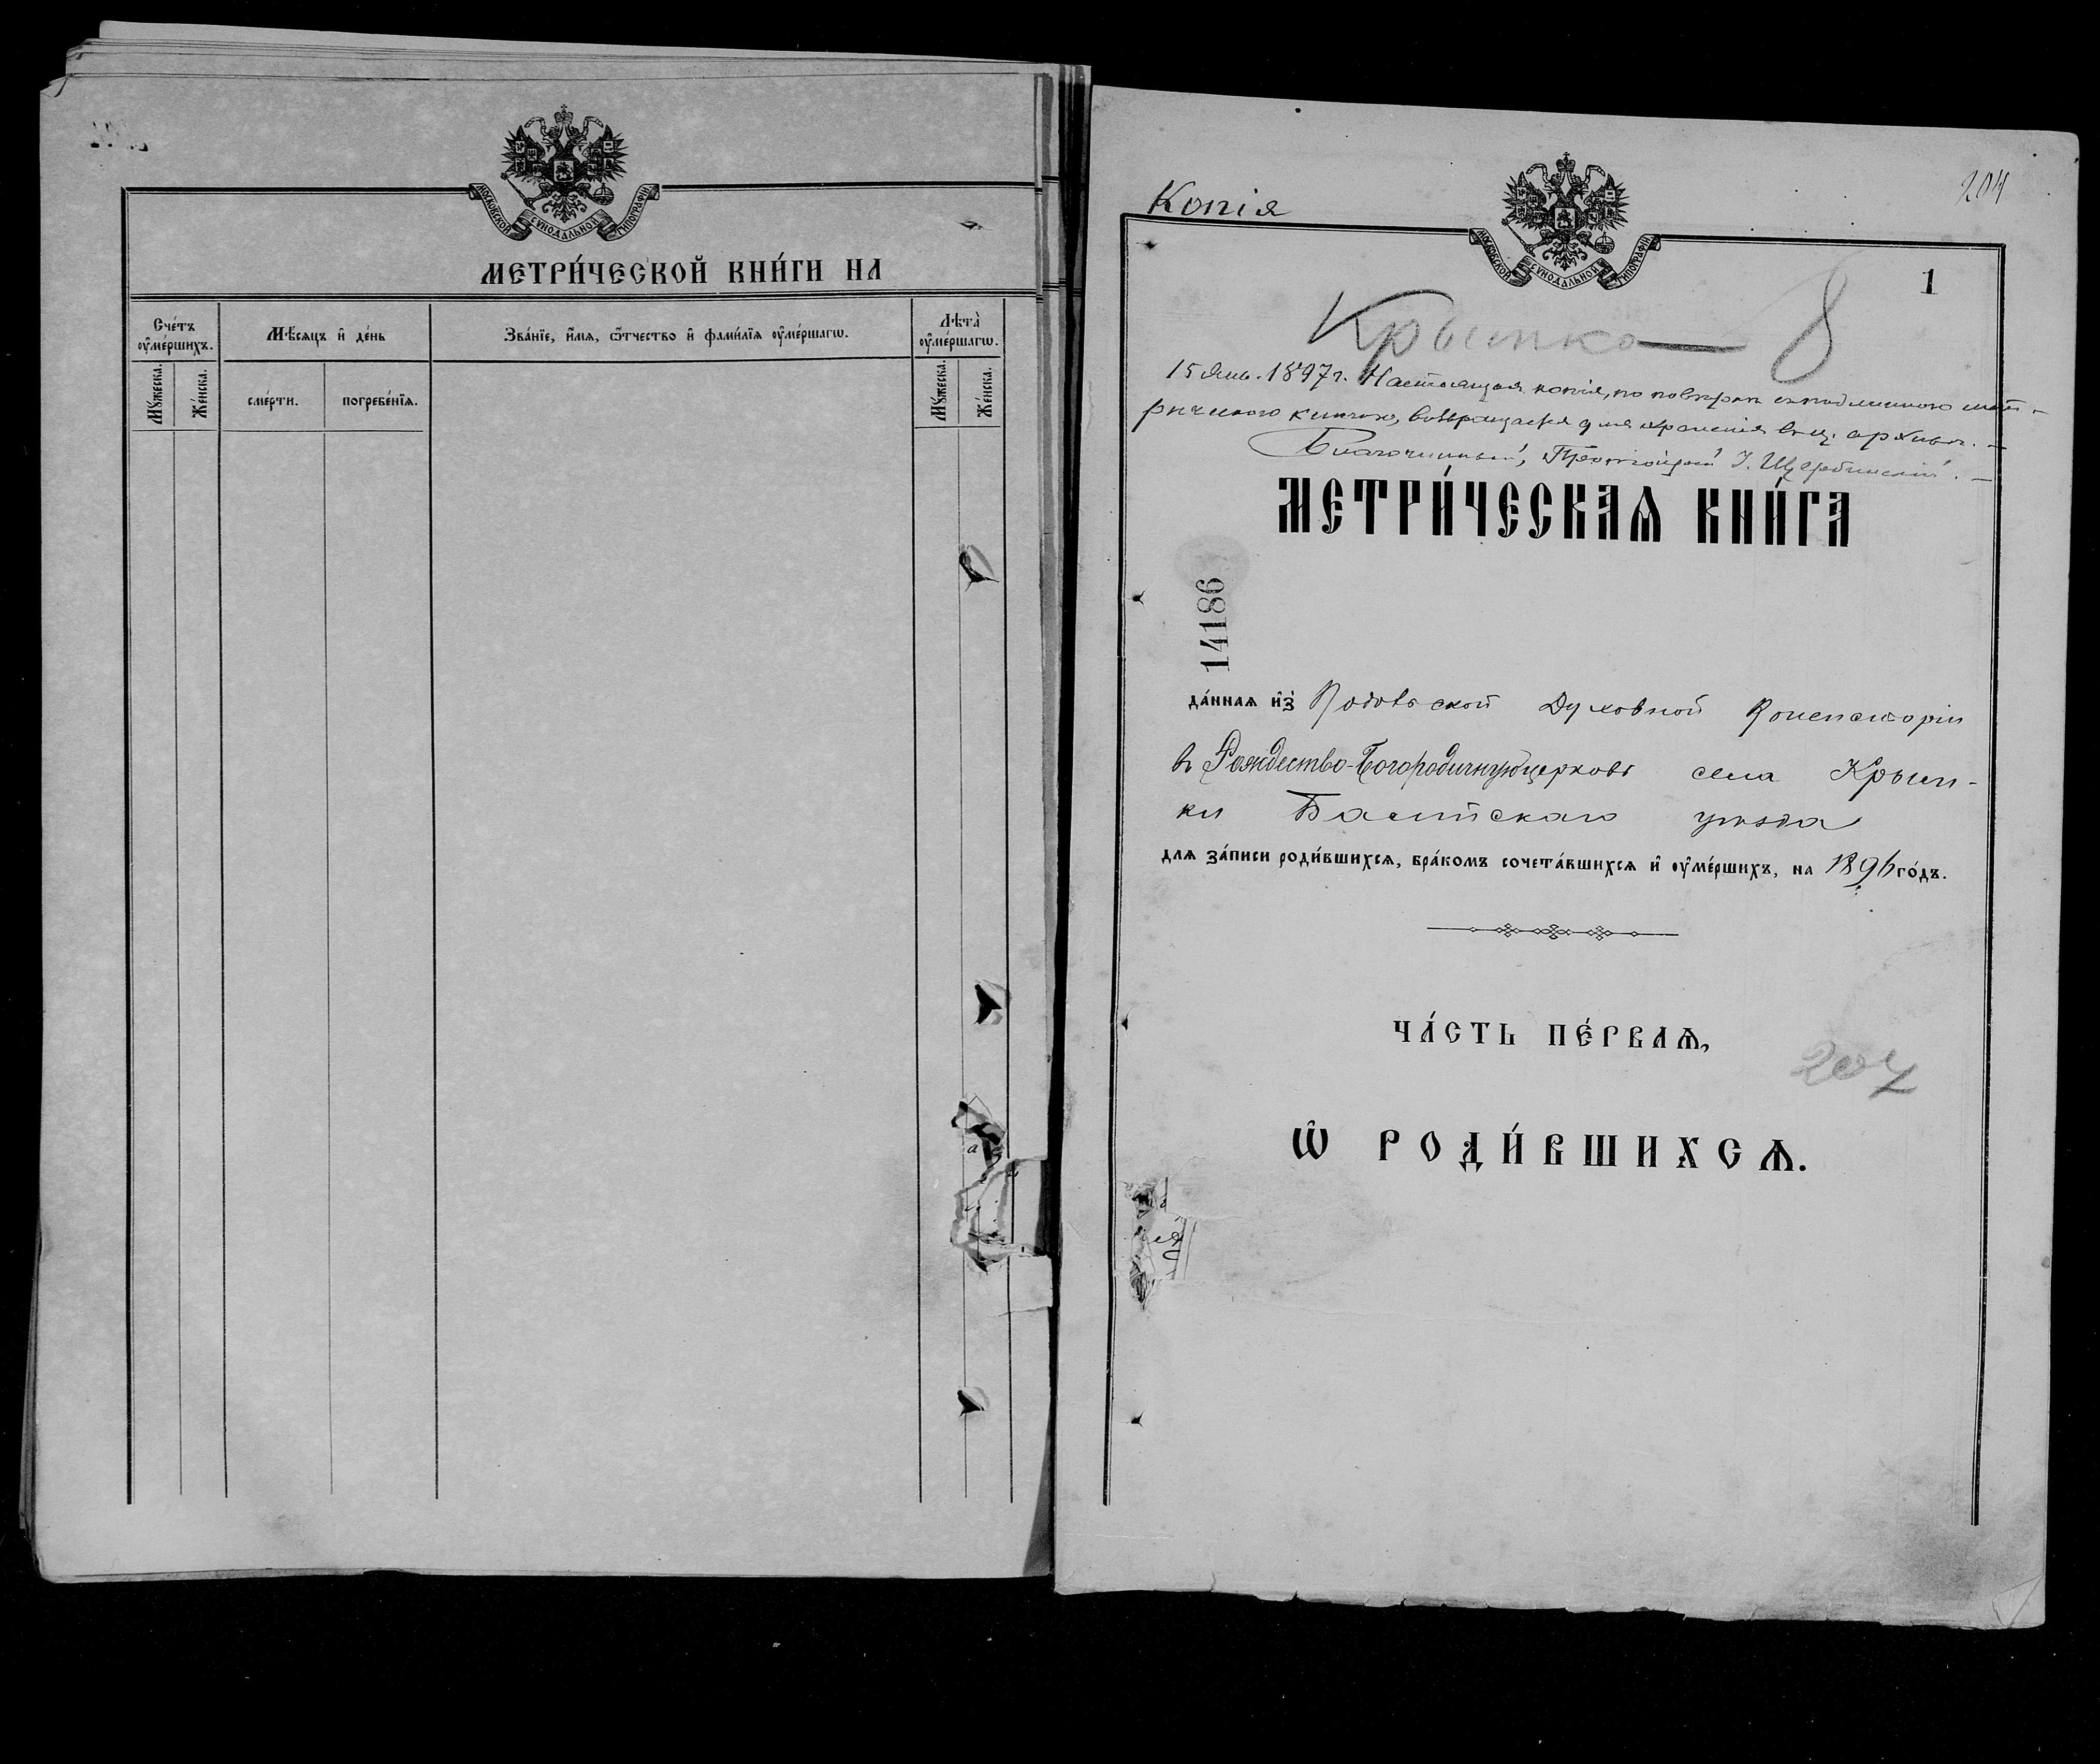 МОСКОВСКОЙ СѴНОДАЛЬНОЙ ТИПОГРАФІИ
МЕТРИ́ЧЕСКОЙ КНИ́ГИ НА
Сче́тъ оу҆ме́ршихъ.
Мѣ́сяцъ и҆ де́нь
Зва́нїе, и҆́мѧ, ѻ҆́тчество и҆ фами́лїѧ оу҆ме́ршагѡ.
Лѣта̀ оу҆ме́ршагѡ.
Мꙋ́жеска.
Же́нска.
сме́рти.
погребе́нїѧ.
Мꙋ́жеска.
Же́нска.
Копія
204
МОСКОВСКОЙ СѴНОДАЛЬНОЙ ТИПОГРАФІИ
1
Крымка — 8
15 Янв. 1897 г. Настоящая копія, по повѣркѣ съ подлинною мет-
рическою книгою, возвращается для храненія въ ц. архивѣ. —
Благочинный, Протоіерей І. Щербинскій. —
МЕТРИ́ЧЕСКАѦ КНИ́ГА
14186
да́ннаѧ и҆з̾ Подольской Духовной Консисторіи
въ Рождество-Богородичную церковь села Крым-
ки Балтскаго уѣзда
длѧ за́писи роди́вшихсѧ, бра́комъ сочета́вшихсѧ и҆ оу҆ме́ршихъ, на 1896 го́дъ.
ЧА́СТЬ ПЕ́РВАѦ,
207
Ѡ҆ РОДИ́ВШИХСѦ.